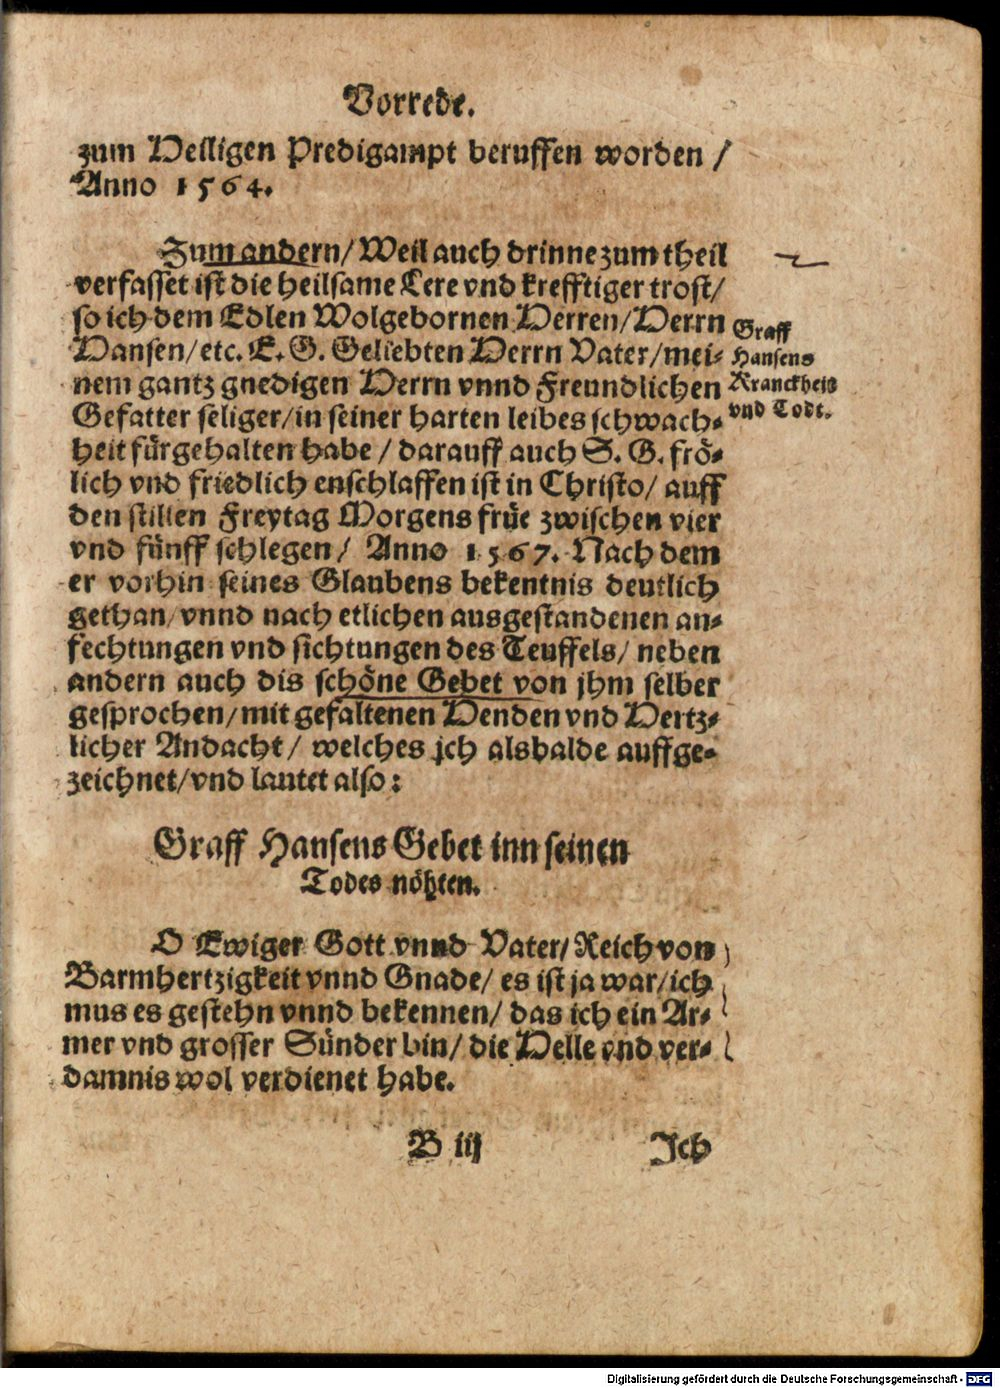 Vorrede.
zum Heiligen Predigampt beruffen worden /
Anno 1564.
Zum andern/ Weil auch drinne zum theil
verfasset ist die heilsame Lere vnd krefftiger trost/
so ich dem Edlen Wolgebornen Herren/ Herrn
Hansen/ etc. E. G. Geliebten Herrn Vater/ mei-
nem gantz gnedigen Herrn vnnd Freundlichen
Gefatter seliger/ in seiner harten leibes schwach-
heit fürgehalten habe / darauff auch S. G. frö-
lich vnd friedlich enschlaffen ist in Christo/ auff
den stillen Freytag Morgens früe zwischen vier
vnd fünff schlegen/ Anno 1567. Nach dem
er vorhin seines Glaubens bekentnis deutlich
gethan/ vnnd nach etlichen ausgestandenen an-
fechtungen vnd sichtungen des Teuffels/ neben
andern auch dis schöne Gebet von jhm selber
gesprochen/ mit gefaltenen Henden vnd Hertz-
licher Andacht/ welches jch alsbalde auffge-
zeichnet/ vnd lautet also:
Graff
Hansens
Kranckheit
vnd Todt.
Graff Hansens Gebet inn seinen
Todes nöhten.
O Ewiger Gott vnnd Vater/ Reich von
Barmhertzigkeit vnnd Gnade/ es ist ja war/ ich
mus es gestehn vnnd bekennen/ das ich ein Ar-
mer vnd grosser Sünder bin/ die Helle vnd ver-
damnis wol verdienet habe.
B iij
Ich
Digitalisierung gefördert durch die Deutsche Forschungsgemeinschaft - DFG